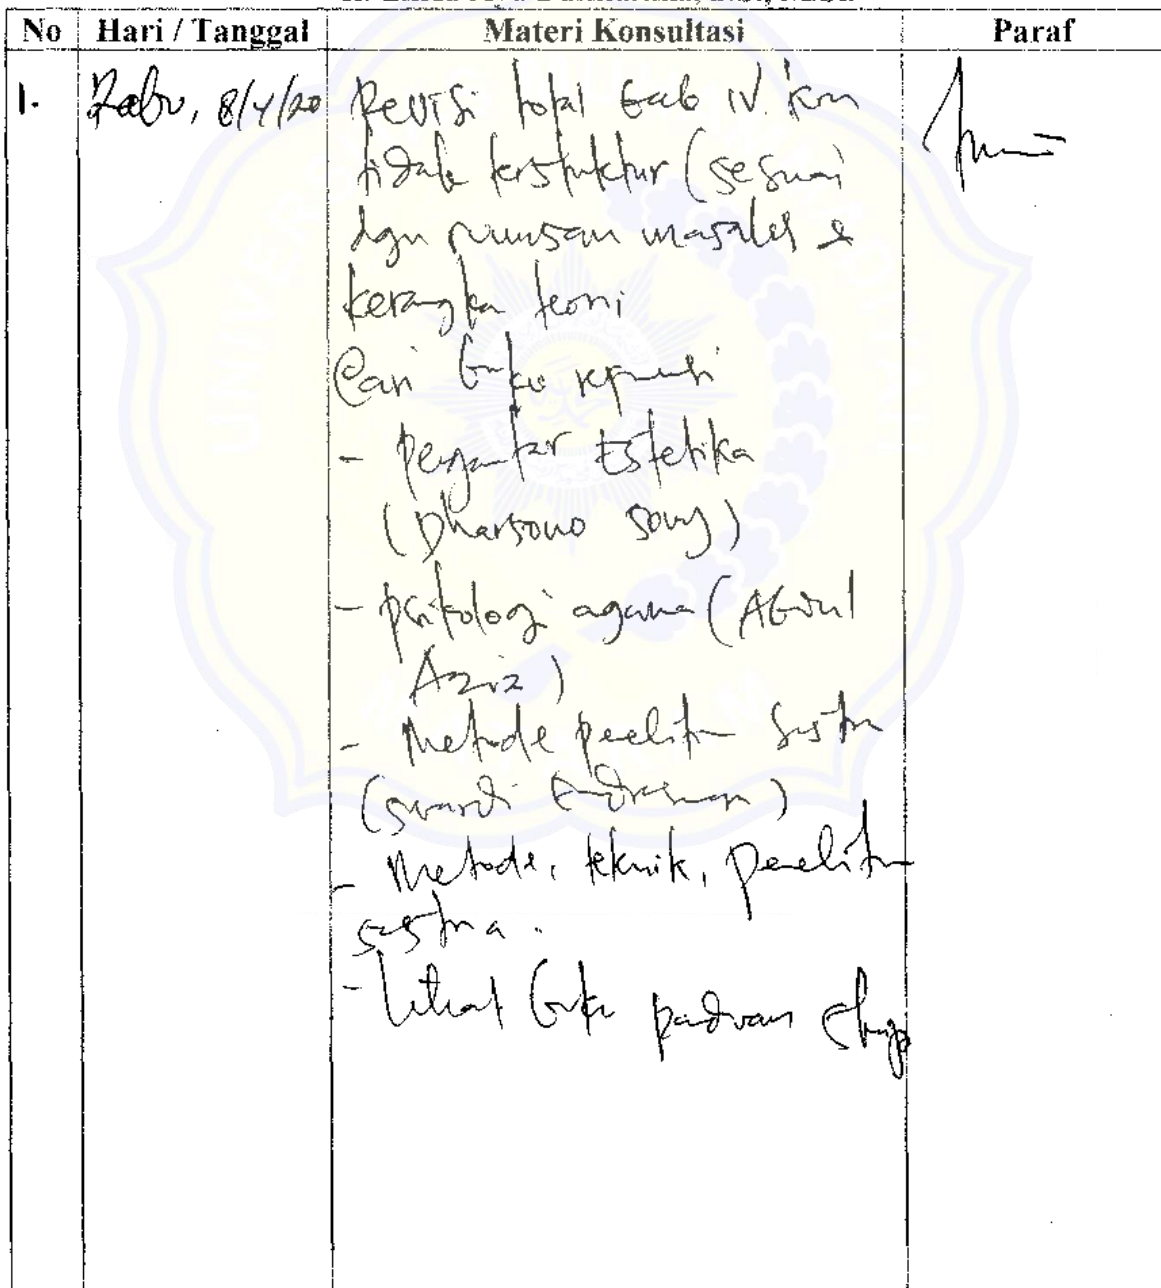 No Hari / Tanggal Materi Konsultasi Paraf
1. Rabu, 8/4/20 Revisi total bab IV. krn
tidak terstuktur (sesuai
dgn rumusan masalah &
kerangka teori
Cari buku referensi
- Pengantar Estetika
(Dharsono Sony)
- psikologi agama (Abdul
Aziz)
- Metode penelitian Sastra
(suwardi Endraswara)
- Metode, teknik, penelitian
sastra.
- Lihat buku panduan skripsi